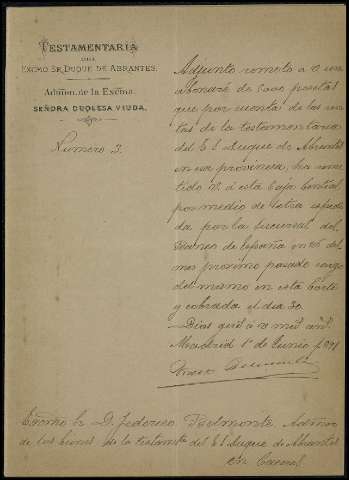 TESTAMENTARIA
DEL
EXCMO. SR. DUQUE DE ABRANTES.
Admón. de la Excma.
SEÑORA DUQUESA VIUDA.
Numero 3.
Adjunto remito a V. un
abonaré de 5000 pesetas
que por cuenta de las ren
tas de la testamentaria
del E. S. Duque de Abrantes
en esa provincia, ha remi
tido V. á esta Caja Central
por medio de letra expedi
da por la sucursal del
Banco de España en 26 del
mes proximo pasado cargo
del mismo en esta Corte
y cobrada el dia 30.
Dios gué á V. mil añs.
Madrid 1º de Junio
Excmo Sr. D. Federico Admor
de los bienes de la testamta del E. S. Duque de Abrantes
en